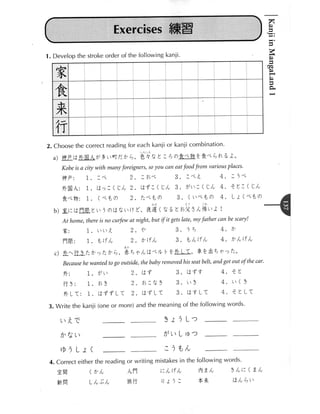 Exercises 練習
Kanji in MangaLand 1
1. Develop the stroke order of the following kanji.
家
食
来
行
2. Choose the correct reading for each kanji or kanji combination.
a) 神戸は外国人が多い町だから、色々なところの食べ物を食べられるよ。
Kobe is a city with many foreigners, so you can eat food from various places.
神戸: 1. こべ 2. これべ 3. こべえ 4. こうべ
外国人: 1. はっこくじん 2. はずこくじん 3. がいこくじん 4. そとこくじん
食べ物: 1. くべもの 2. たべもの 3. くいべもの 4. しょくべもの
b) 家には門限というのはないけど、夜遅くなるとお父さん怖いよ!
At home, there is no curfew at night, but if it gets late, my father can be scary!
家: 1. いいえ 2. や 3. うち 4. か
門限: 1. もげん 2. かげん 3. もんげん 4. かんげん
c) 外へ行きたかったから、赤ちゃんはベルトを外して、車を出ちゃった。
Because he wanted to go outside, the baby removed his seat belt, and got out of the car.
外: 1. がい 2. はず 3. はずす 4. そと
行き: 1. おき 2. おこなき 3. いき 4. いくき
外して: 1. はずずして 2. はずして 3. はすして 4. そとして
3. Write the kanji (one or more) and the meaning of the following words.
いえで きょうしつ
かない がいしゅつ
ゆうしょく こうもん
4. Correct either the reading or writing mistakes in the following words.
空間 くかん 入門 にんげん 内ま人 さんにくまん
新問 しんぶん 旅行 りょうこ 本未 ほんらい
137